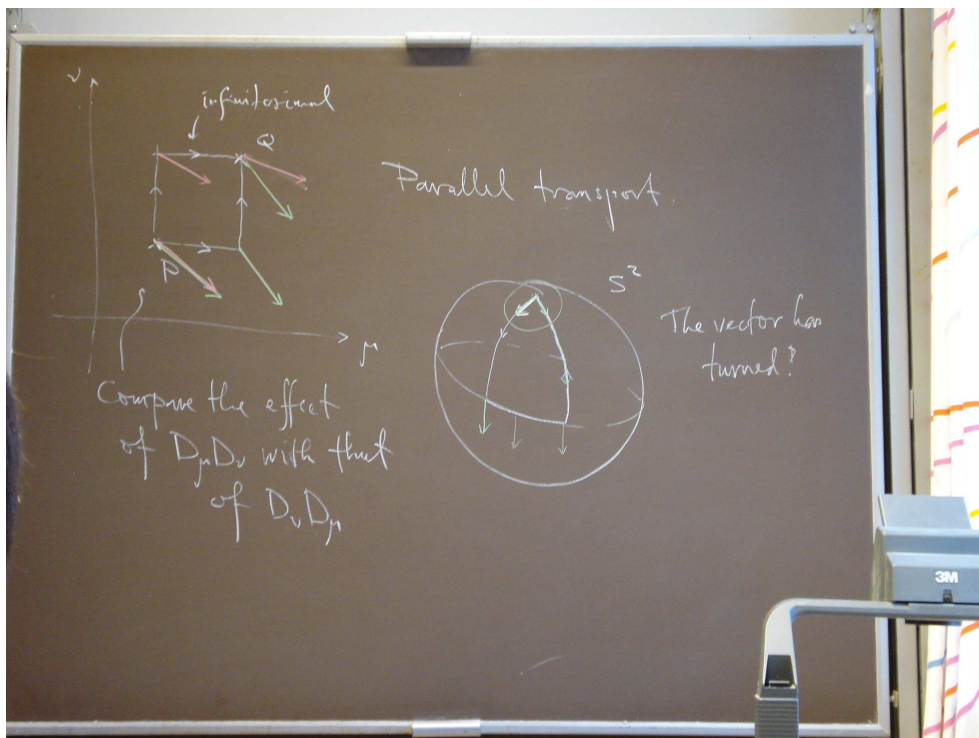 ν
infinitesimal
Q
P
μ
Parallel transport.
S²
The vector has
turned!
Compare the effect
of DμDν with that
of DνDμ
3M